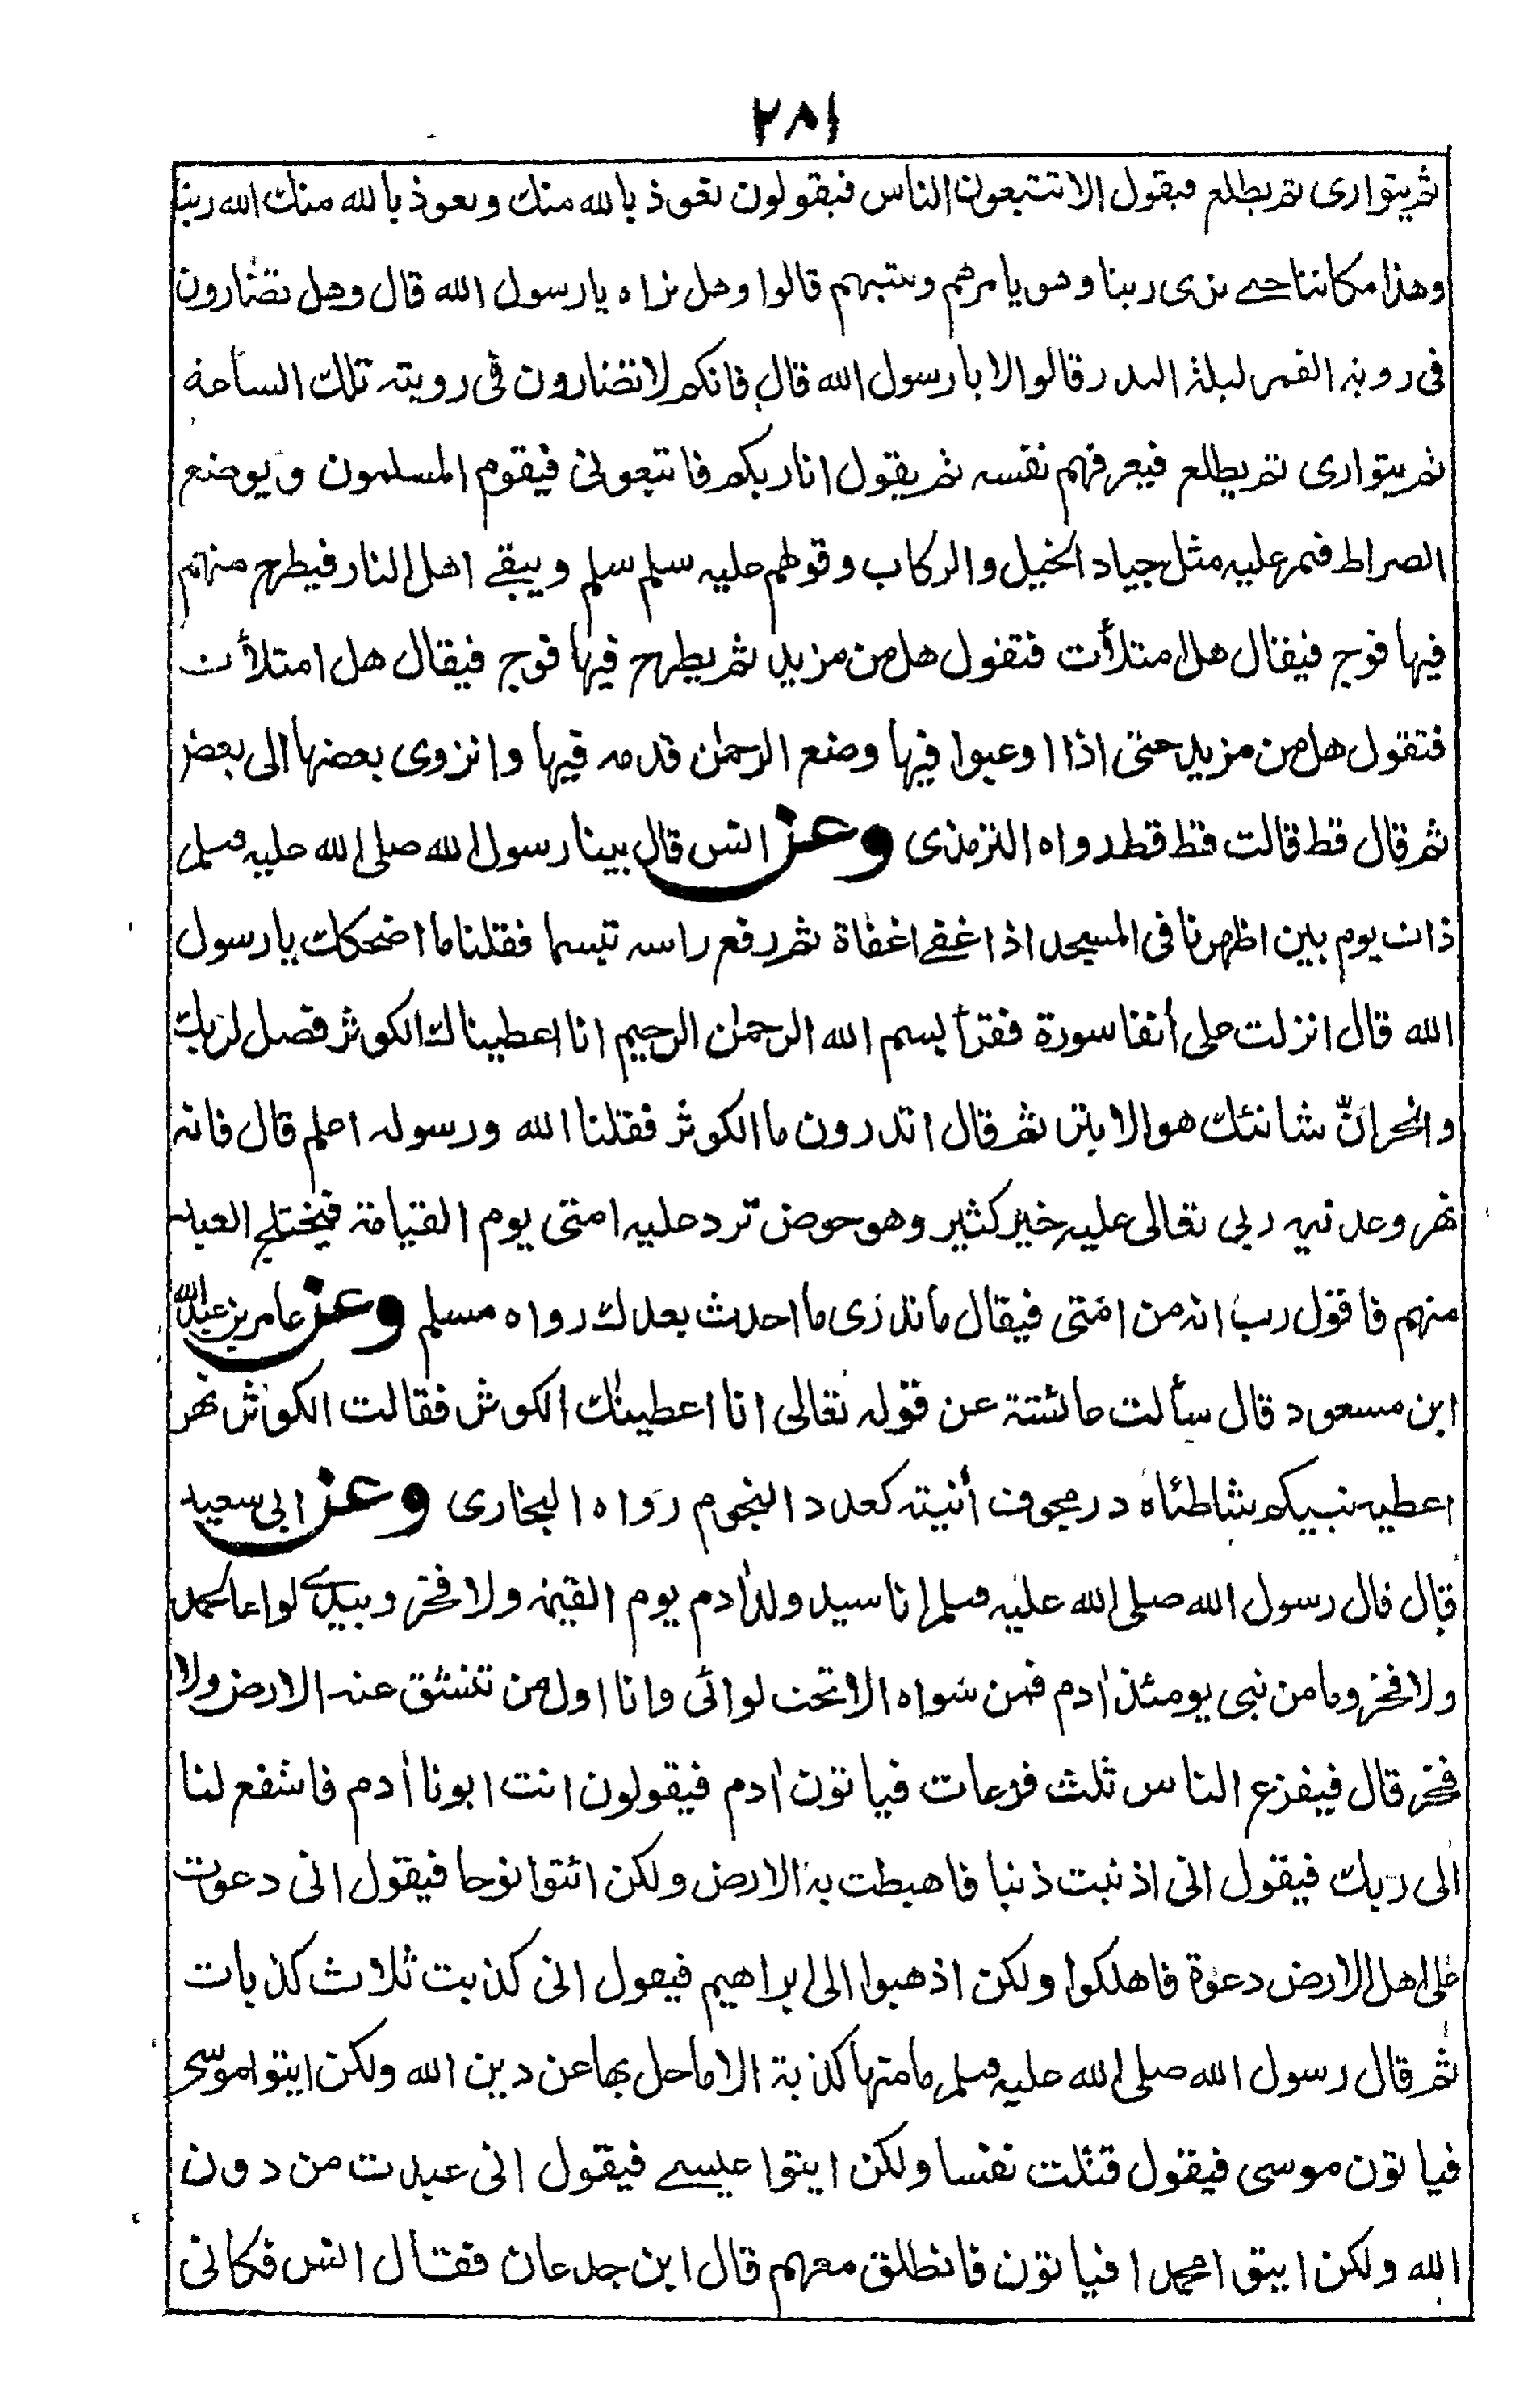 ٢٨١
ثم يتوارى ثم يطلع فيقول الا تتبعون الناس فيقولون نعوذ بالله منك ونعوذ بالله منك الله ربنا
وهذا مكاننا حتے نرى ربنا وهو يامرهم ويثبتهم قالوا وهل نراه يا رسول الله قال وهل تضارون
فى روية القمر ليلة البدر قالوا لا يا رسول الله قال فانكم لا تضارون فى رويته تلك الساعة
ثم يتوارى ثم يطلع فيعرفهم نفسه ثم يقول انا ربكم فاتبعونى فيقوم المسلمون ويوضع
الصراط فيمر عليه مثل جياد الخيل والركاب وقولهم عليه سلم سلم ويبقے اهل النار فيطرح منهم
فيها فوج فيقال هل امتلأت فتقول هل من مزيد ثم يطرح فيها فوج فيقال هل امتلأت
فتقول هل من مزيد حتى اذا اوعبوا فيها وضع الرحمٰن قدمه فيها وانزوى بعضها الى بعض
ثم قال قط قالت قط قط رواه الترمذى وعن انس قال بينا رسول الله صلى الله عليه وسلم
ذات يوم بين اظهرنا فى المسجد اذ اغفے اغفاة ثم رفع راسه تبسما فقلنا ما اضحكك يا رسول
الله قال انزلت على أنفا سورة فقرأ بسم الله الرحمٰن الرحيم انا اعطيناك الكوثر فصل لربك
وانحر انّ شانئك هو الابتر ثم قال اتدرون ما الكوثر فقلنا الله ورسوله اعلم قال فانه
نهر وعدنيه ربى تعالى عليه خير كثير وهو حوض ترد عليه امتى يوم القيامة فيختلج العبد
منهم فاقول رب انه من امتى فيقال ما تدرى ما احدث بعدك رواه مسلم وعن عامر بن عبد الله
ابن مسعود قال سألت عائشة عن قوله تعالى انا اعطينٰك الكوثر فقالت الكوثر نهر
اعطيه نبيكم شاطئاه در مجوف أنيته كعدد النجوم رواه البخارى وعن ابى سعيد
قال قال رسول الله صلى الله عليه وسلم انا سيد ولد اٰدم يوم القيمة ولا فخر وبيدے لواء الحمد
ولا فخر وما من نبى يومئذ اٰدم فمن سواه الا تحت لوائى وانا اول من تنشق عنه الارض ولا
فخر قال فيفزع الناس ثلث فزعات فياتون اٰدم فيقولون انت ابونا اٰدم فاشفع لنا
الى ربك فيقول انى اذنبت ذنبا فاهبطت به الارض ولكن ائتوا نوحا فيقول انى دعوت
على اهل الارض دعوة فاهلكوا ولكن اذهبوا الى ابراهيم فيقول انى كذبت ثلاث كذبات
ثم قال رسول الله صلى الله عليه وسلم ما منها كذبة الا ماحل بها عن دين الله ولكن ايتوا موسى
فياتون موسى فيقول قتلت نفسا ولكن ايتوا عيسے فيقول انى عبدت من دون
الله ولكن ايتوا محمدا فياتون فانطلق معهم قال ابن جدعان فقال انس فكانى